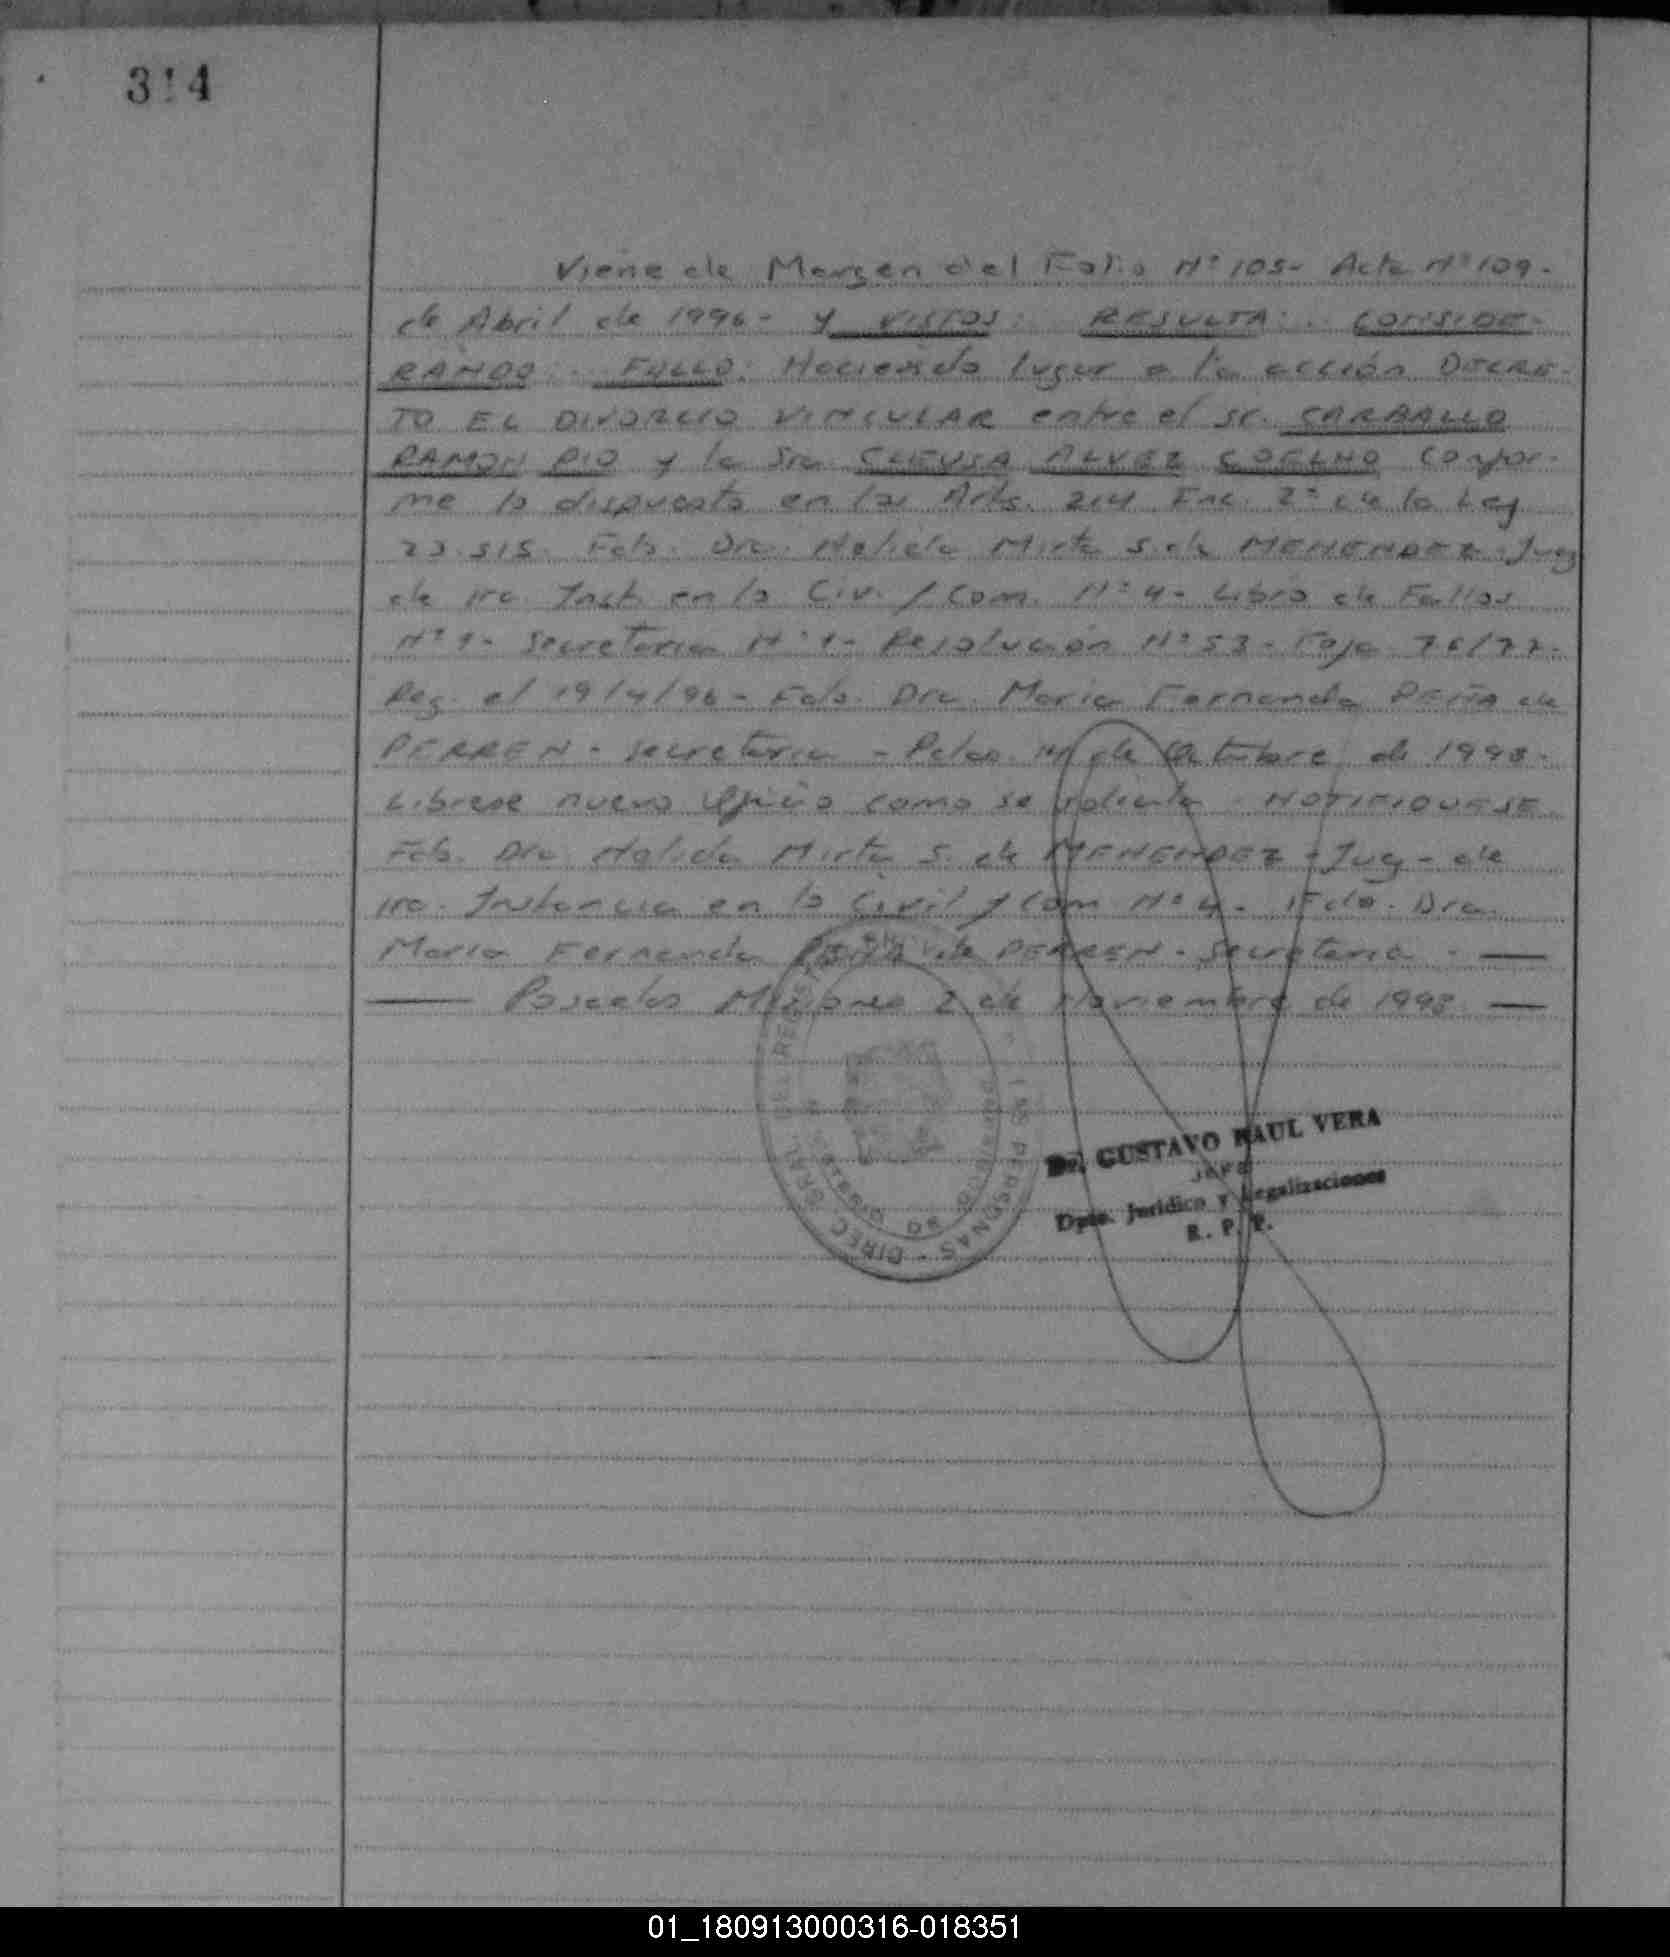 314
Viene de Margen del Folio Nº 105- Acta Nº 109-
de Abril de 1996- Y VISTOS: RESULTA: . CONSIDE-
RANDO: . FALLO: Haciendo lugar a la acción DECRE-
TO EL DIVORCIO VINCULAR entre el sr. CARBALLO
RAMON PIO y la Sra CLEUSA ALVEZ COELHO Confor-
me lo dispuesto en los Arts. 214 Inc. 2º de la Ley
23.515. Fdo. Dra. Nelida Mirta S. de MENENDEZ. Juez
de 1ra Inst. en lo Civ. y Com. Nº 4- Libro de Fallos
Nº 1- Secretaria Nº 1- Resolución Nº 53- Foja 76/77-
Reg. el 19/4/96- Fdo. Dra. Maria Fernanda PEÑA de
PERREN- Secretaria - Pdas. 14 de Octubre de 1998-
Librese nuevo Oficio como se solicita. NOTIFIQUESE.
Fdo. Dra. Nelida Mirta S. de MENENDEZ - Juez - de
1ra. Instancia en lo Civil y Com Nº 4- Fdo. Dra.
Maria Fernanda PEÑA de PERREN- Secretaria - —
— Posadas Misiones 2 de Noviembre de 1998. —
DIREC. GRAL. DEL REGISTRO PERSONAS
Dr. GUSTAVO RAUL VERA
JEFE
Dpto. Jurídico y Legalizaciones
R. P. P.
01_180913000316-018351